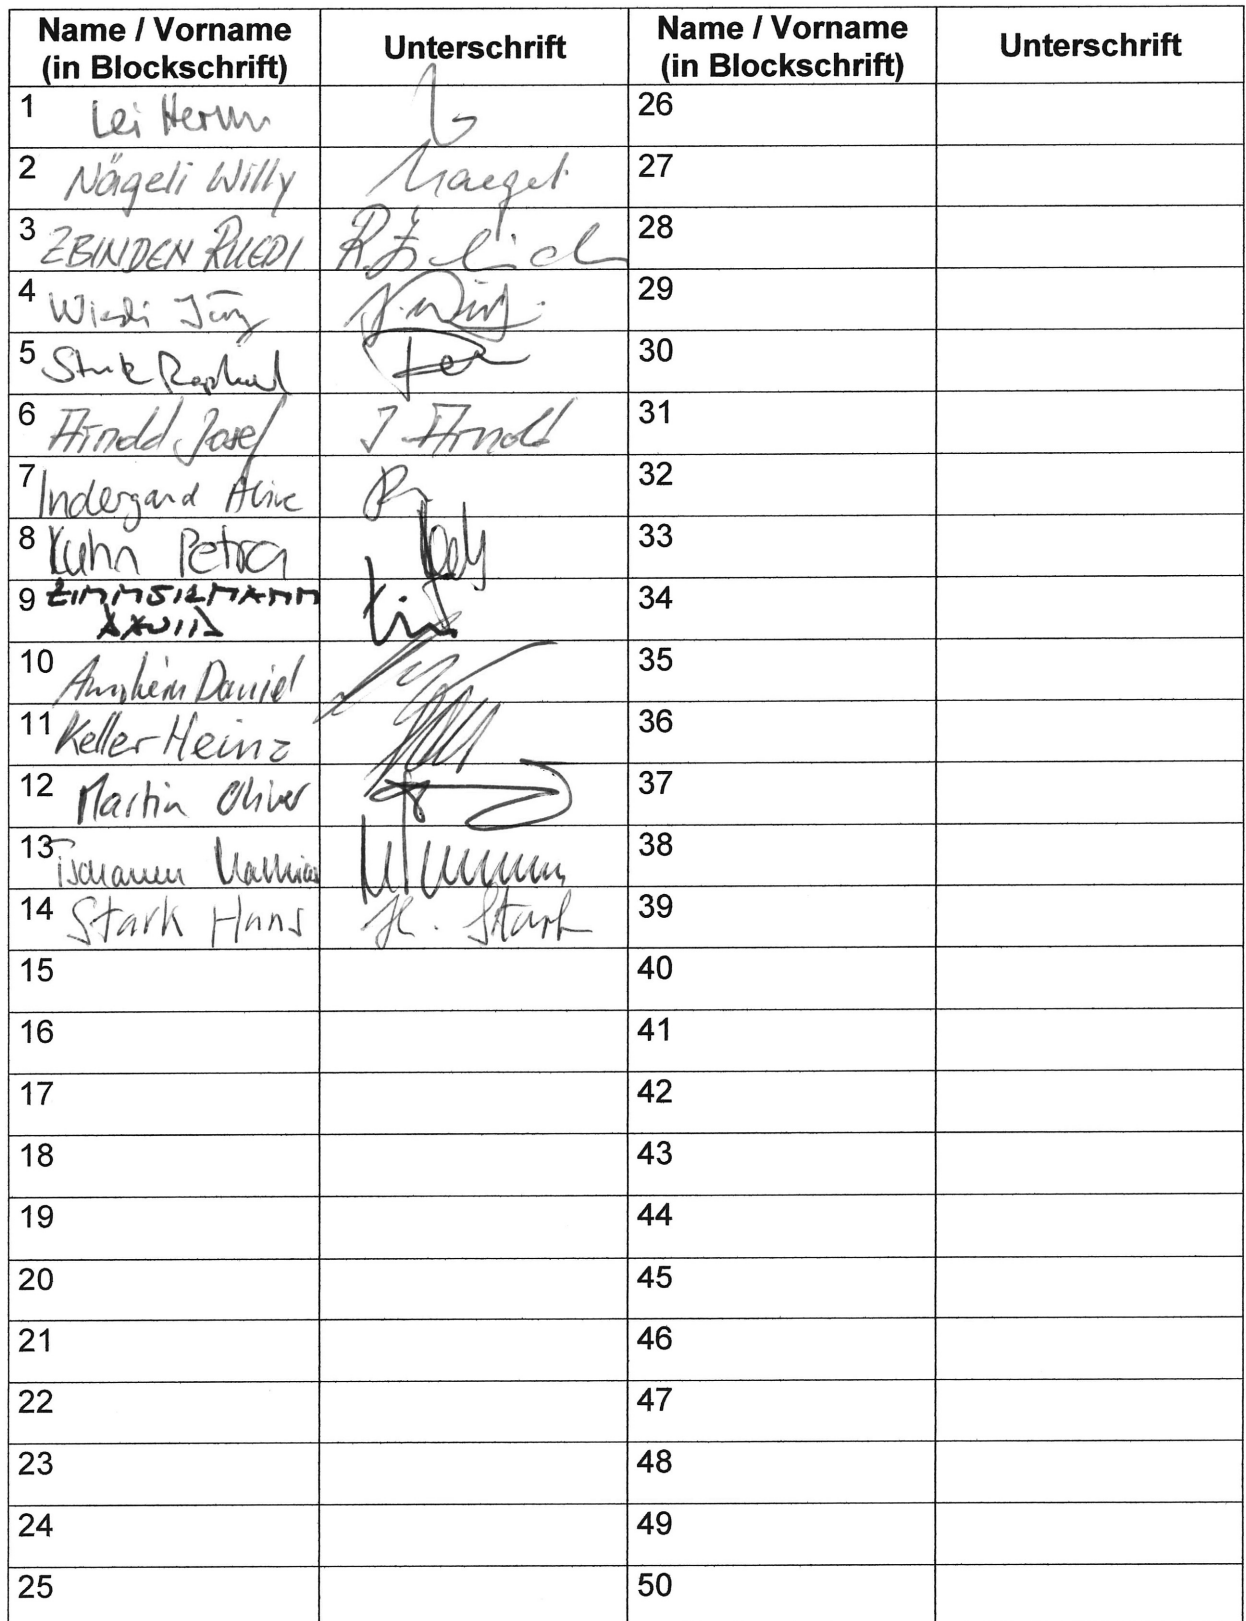 Name / Vorname
(in Blockschrift)
Unterschrift
Name / Vorname
(in Blockschrift)
Unterschrift
1 Lei Herm
26
2 Nägeli Willy
27
3 ZBINDEN RUEDI R. Zbinden
28
4 Wiesli Jürg
29
5 Raphael
30
6 Arnold Josef J. Arnold
31
7 Indergand Aline
32
8 Kuhn Petra
33
9 ZIMMERMANN
DAVID
34
10 Daniel
35
11 Keller Heinz
36
12 Martin Oliver
37
13 Tschanen Mathias
38
14 Stark Hans H. Stark
39
15
40
16
41
17
42
18
43
19
44
20
45
21
46
22
47
23
48
24
49
25
50